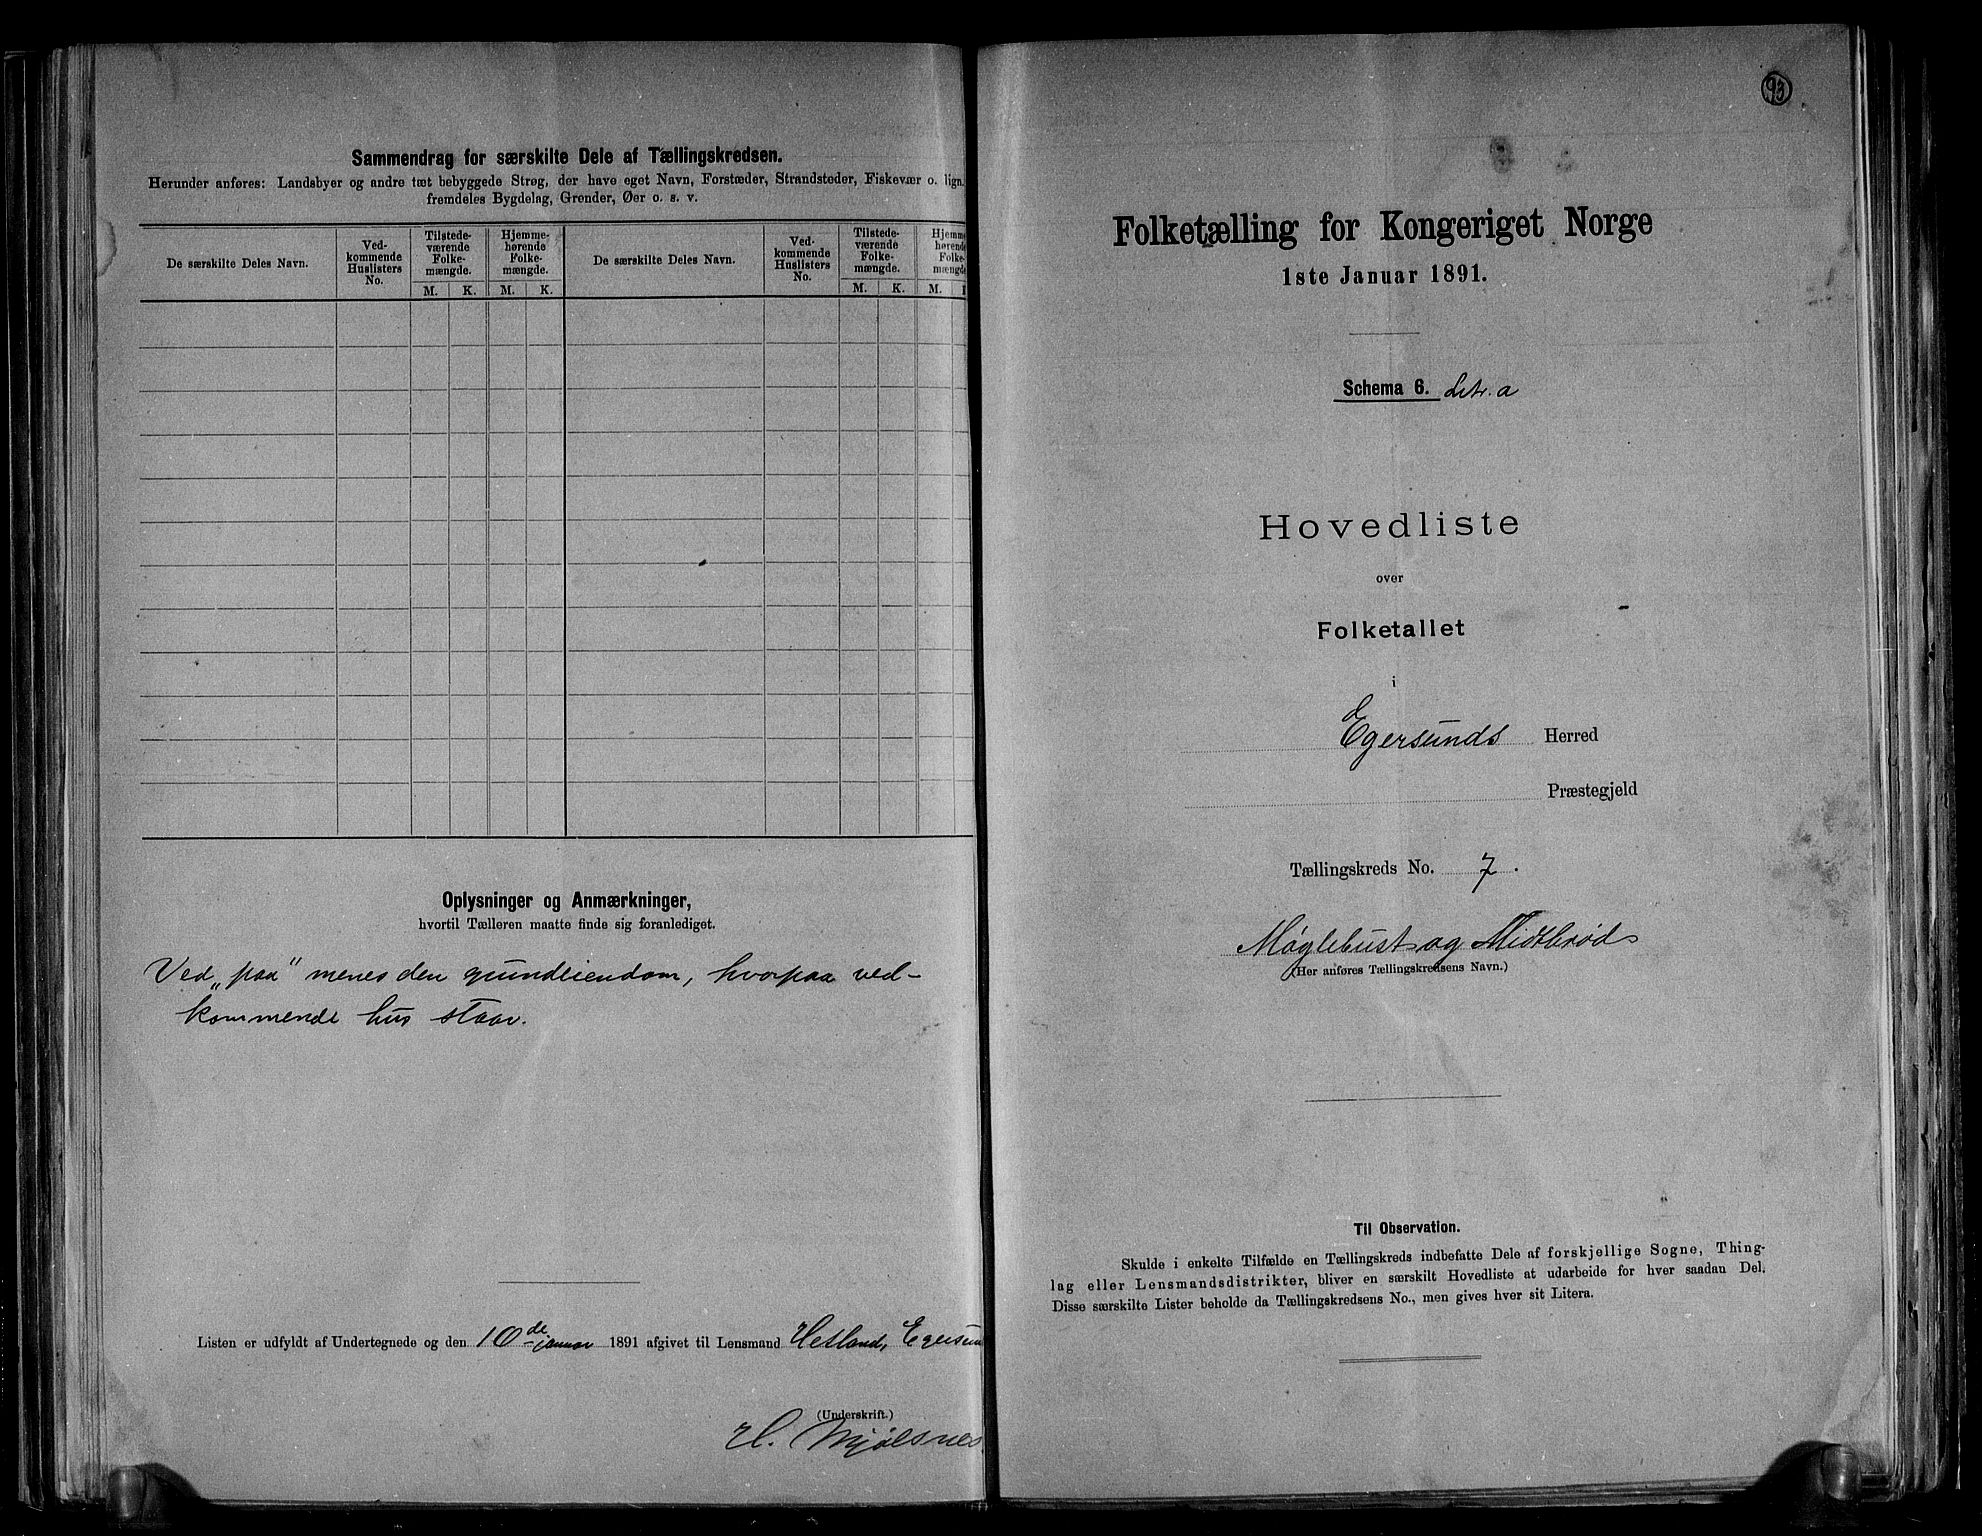 Sammendrag for særskilte Dele af Tællingskredsen.
Herunder anføres: Landsbyer og andre tæt bebyggede Strøg, der have eget Navn, Forstæder, Strandsteder, Fiskevær o. lign.
fremdeles Bygdelag, Grender, Øer o. s. v.
De særskilte Deles Navn.
Ved-
kommende
Huslisters
No.
Tilstede-
værende
Folke-
mængde.
Hjemme-
hørende
Folke-
mængde.
M. K. M. K.
De særskilte Deles Navn.
Ved-
kommende
Huslisters
No.
Tilstede-
værende
Folke-
mængde.
Hjemme
hørende
Folke-
mængde
M. K. M.
Oplysninger og Anmærkninger,
hvortil Tælleren maatte finde sig foranlediget.
Ved „paa" menes den grundeiendom, hvorpaa ved-
kommende hus staar.
Listen er udfyldt af Undertegnede og den 10de januar 1891 afgivet til Lensmand Hetland, Egersun
(Underskrift.)
H. Mjølsnes
93
Folketælling for Kongeriget Norge
1ste Januar 1891.
Schema 6. Litr. a
Hovedliste
over
Folketallet
i
Egersunds Herred
Præstegjeld
Tællingskreds No. 7.
Møglebust og Midtbrød
(Her anføres Tællingskredsens Navn.)
Til Observation.
Skulde i enkelte Tilfælde en Tællingskreds indbefatte Dele af forskjellige Sogne, Thing-
lag eller Lensmandsdistrikter, bliver en særskilt Hovedliste at udarbeide for hver saadan Del.
Disse særskilte Lister beholde da Tællingskredsens No., men gives hver sit Litera.